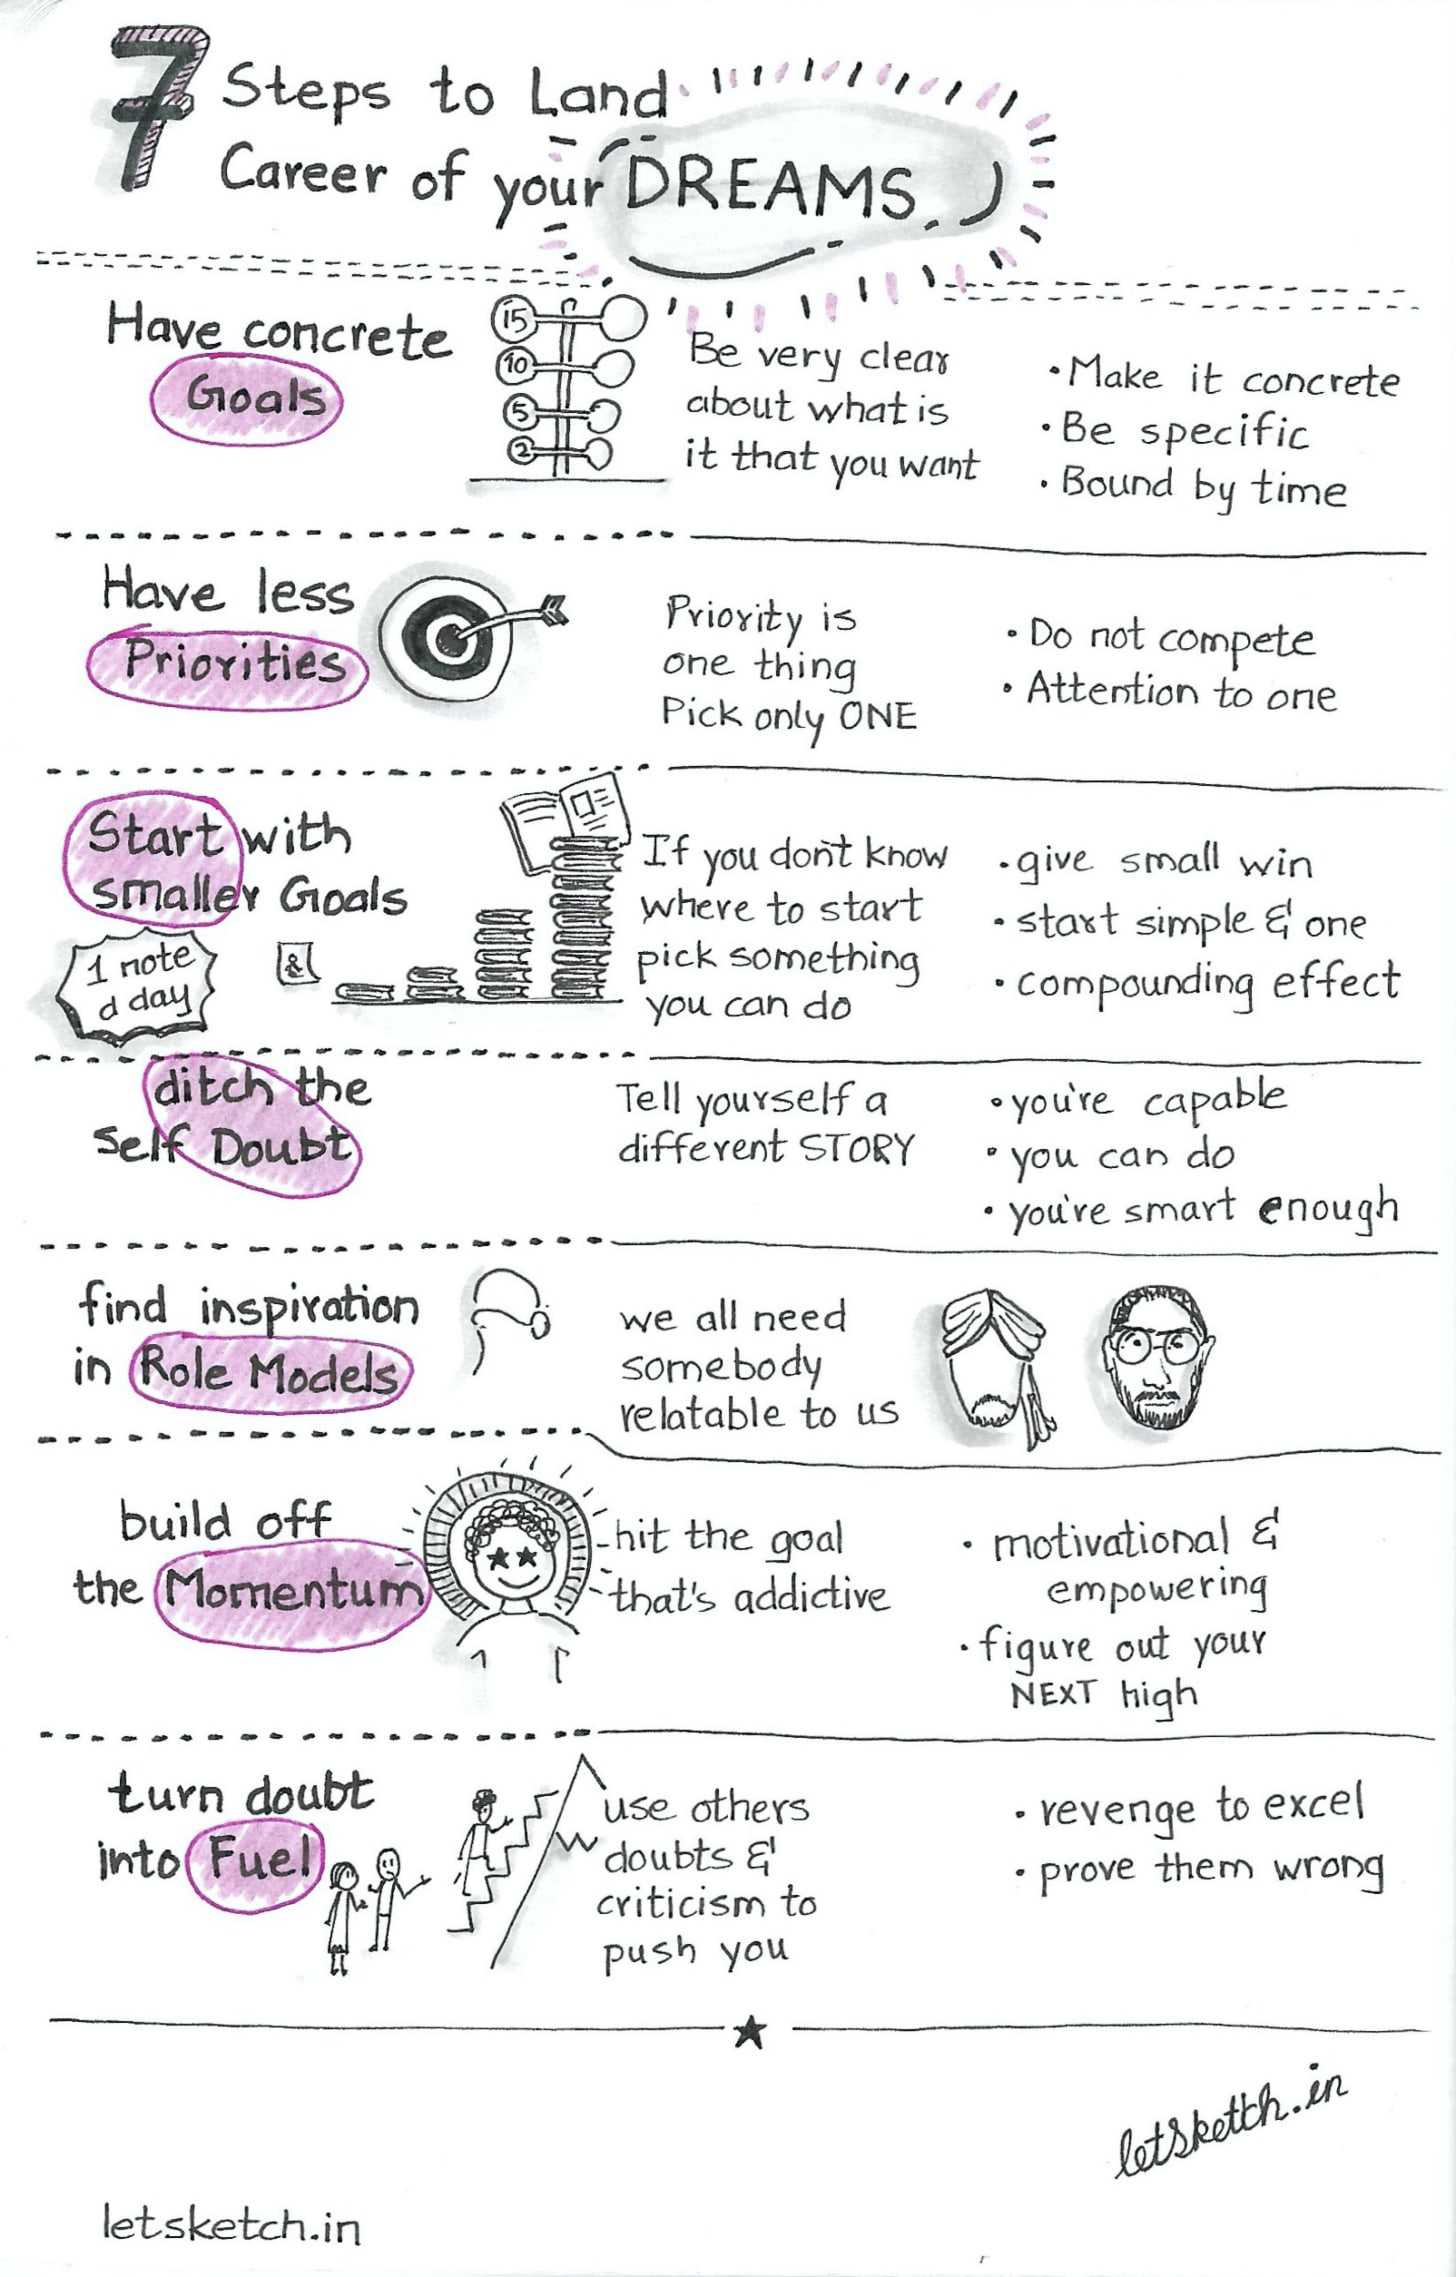 7 Steps to Land
Career of your DREAMS.
Have concrete
Goals
15
10
5
2
Be very clear
about what is
it that you want
• Make it concrete
• Be specific
• Bound by time
Have less
Priorities
Priority is
one thing
Pick only ONE
• Do not compete
• Attention to one
Start with
smaller Goals
1 note
a day
&
If you don't know
where to start
pick something
you can do
• give small win
• start simple & one
• compounding effect
ditch the
Self Doubt
Tell yourself a
different STORY
• you're capable
• you can do
• you're smart enough
find inspiration
in Role Models
we all need
somebody
relatable to us
build off
the Momentum
hit the goal
that's addictive
• motivational &
empowering
• figure out your
NEXT high
turn doubt
into Fuel
use others
doubts &
criticism to
push you
• revenge to excel
• prove them wrong
letsketch.in
letsketch.in